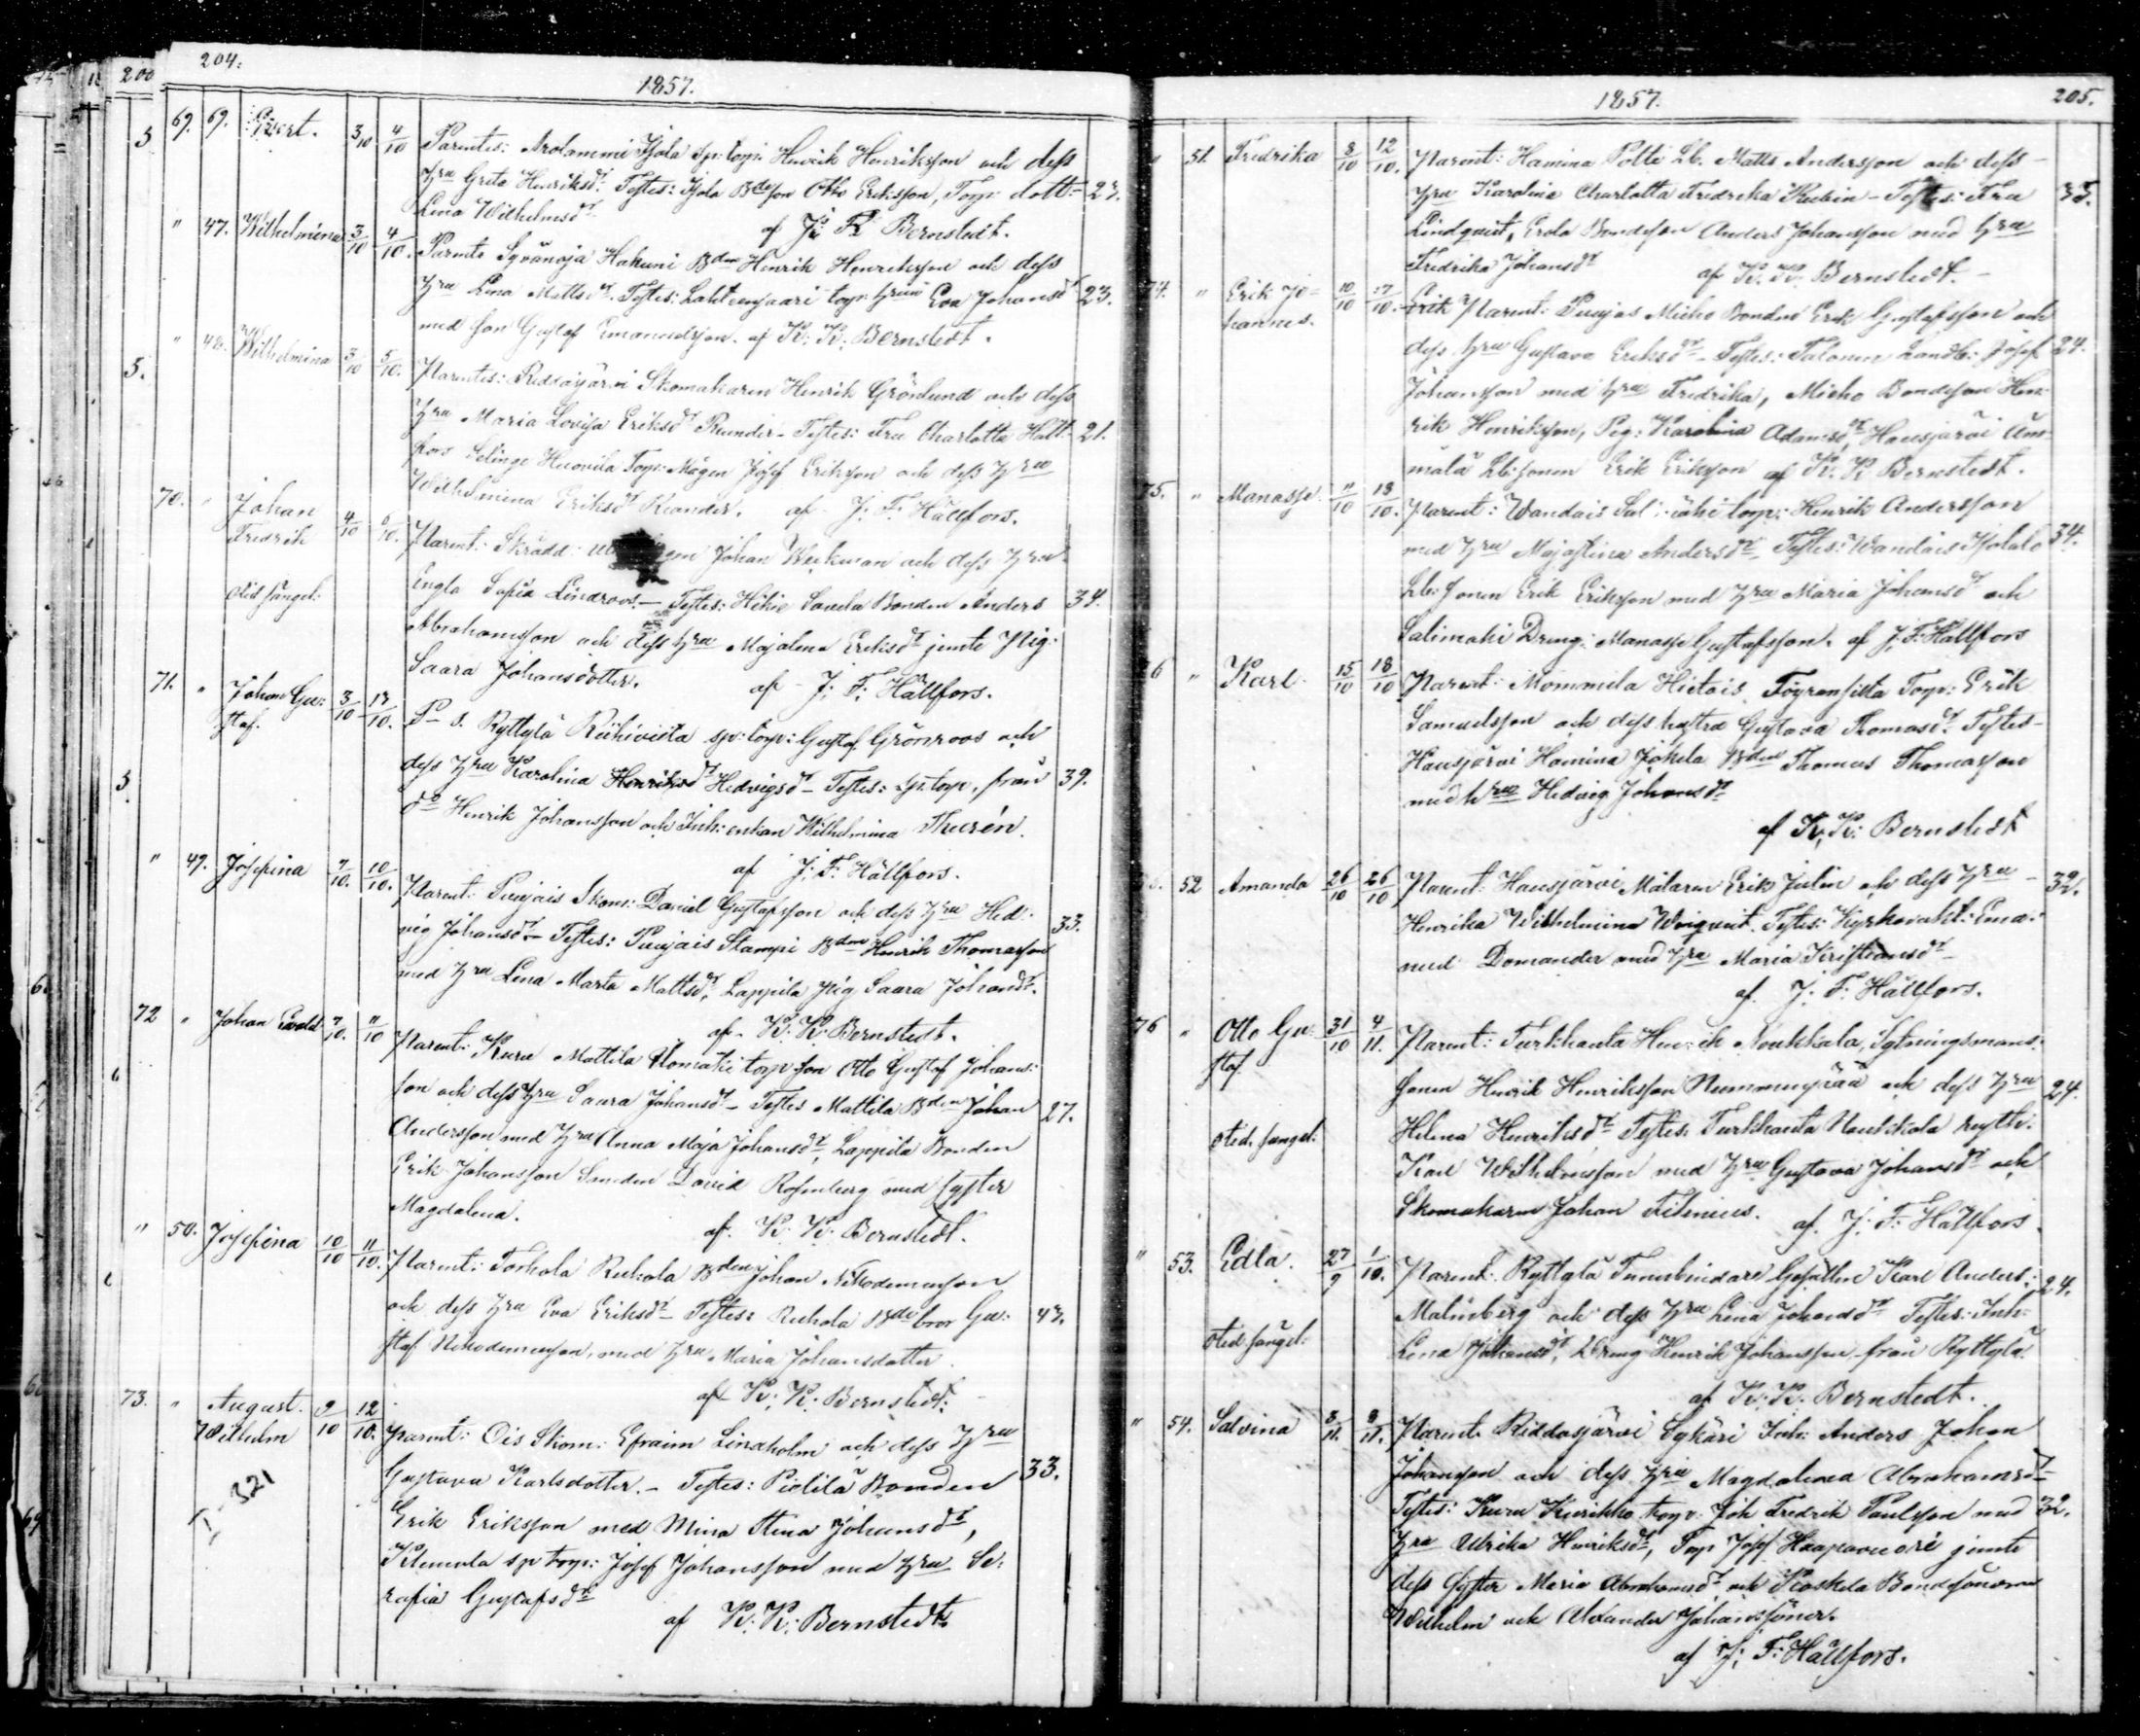 200 204.
1857.
69. 69. Evert. 3/10 4/10 Parentes: Arolammi Isola sp: torp: Henrik Henriksson och dess
hru Greta Henriksdr. Testes: Isola Bdeson Otto Eriksson, Torp: dott= 27.
Lina Wilhelmsdr.
af K: K: Bernstedt.
" 47. Wilhelmina 3/10 4/10. Parents Syvänoja Hakuni Bden Henrik Henriksson och dess
hru Lena Mattsdr. Testes: Lahtensaari torp: Eva Johansdr 23.
med son Gustaf Emanuelsson. af K: K: Bernstedt.
" 48. Wilhelmina 3/10 5/10. Parentes: Riddasjärvi Skomakaren Henrik Grönlund och dess
hru Maria Lovisa Eriksdr Reander – Testes: Fru Charlotta Häll- 21.
fors Torp: Mågen Josef Eriksson och dess hru
Wilhelmina Eriksdr Reander. af J: F: Hällfors.
70. " Johan
Fredrik 4/10 5/10. Parent: Skrädd: Johan Weckman och dess hru
Engla Sofia Lindroos. – Testes: Hikiä Bonden Anders 34.
Abrahamsson och dess hru Majalena Eriksdr jemte Pig:
Saara Johansdotter. af J: F: Hällfors.
71. " Johan Gu=
staf. 3/10 13/10. P–s. Ryttylä Riihiviita sp: torp: Gustaf Grönroos och
dess hru Karolina Henriksdr Hedvigsdr – Testes: sp: torp. från 39.
do Henrik Johansson och Inh: enkan Wilhelmina Thurén.
af J: F: Hällfors.
" 49. Josefina 7/10. 10/10. Parent: Puujais Skom: Daniel Gustafsson och dess hru Hed=
vig Johansdr – Testes: Puujais Stampi Bden Henrik Thomasson 33.
med hru Lena Marta Mattsdr, Lappila Pig Saara Johansdr.
af K: K: Bernstedt.
72 " Johan Evald 7/10. 11/10 Parent: Kuru Mattila torp son Otto Gustaf Johans=
son och dess hru Saara Johansdr – Testes Mattila Bden Johan 27.
Andersson med hru Anna Maja Johansdr, Lappila Bonden
Erik Johansson David Rosenberg med syster
Magdalena. af K: K: Bernstedt.
" 50. Josefina 10/10 11/10. Parent: Torhola Ruhola Bden Johan Nikodemusson
och dess hru Eva Eriksdr – Testes: Ruhola Bde bror Gu= 47.
staf Nikodemusson, med hru Maria Johansdotter.
af K: K: Bernstedt.
73. " August.
Wilhelm 9/10 12/10. Parent: Ois Skom: Efraim Lindholm och dess hru
Gustava Karlsdotter. – Testes: Piolilä Bonden 33.
Erik Eriksson med Mina Stina Johansdr,
sp torp: Josef Johansson med hru Se=
rafia Gustafsdr
af K: K: Bernstedt.
I- 321
1857. 205.
51. Fredrika 8/10 12/10. Parent: Hamina Potti Lb. Matts Andersson och dess –
hru Karolina Charlotta Fredrika – Testes: Fru 35.
Lindqvist, Erola Bondeson Anders Johansson med hru
Fredrika Johansdr af K. K. Bernstedt. –
74. " Erik Jo=
hannes. 10/10 17/10. Erik Parent: Puujas Micko Bonden Erik Gustafsson och
dess hru Gustava Eriksdr – Testes: Talonen Landb: Josef 24.
Johansson med hru Fredrika, Micko Bondeson Hen=
rik Henriksson, Pig: Karolina Adamsdr, Hausjärvi Äm=
mälä Lb: sonen Erik Eriksson af K: K Bernstedt.
75. " Manasse. 11/10 18/10. Parent: Wandais torp: Henrik Andersson
med hru Majastina Andersdr – Testes: Wandais Isotalo 34.
Lb: sonen Erik Eriksson med hru Maria Johansdr och
Salimäki Dreng: Manasse Gustafsson. af J: F: Hällfors
76 " Karl. 15/10 18/10 Parent: Mommila Hietois Torp: Erik
Samuelsson och dess hustru Gustava Thomasdr. Testes –
Hausjärvi Hamina Jokela Bden Thomas Thomasson
med hru Hedvig Johansdr
af K: K: Bernstedt
52 Amanda 26/10 26/10 Parent: Hausjärvi Målaren Erik Julin och dess hru – 32.
Henrika Wilhelmina Weiqvist. Testes: Kyrkovakt: Ema=
nuel Domander med hru Maria Kristiansdr –
af J: F: Hällfors.
76 " Otto Gu=
staf 31/10 4/11. Parent: Turkhauta Noukkala, Sytningsmans=
sonen Henrik Henriksson Nummenpää och dess hru 24.
Helena Henriksdr Testes. Turkhauta Noukkola
Karl Wilhelmsson med hru Gustava Johansdr och
Skomakaren Johan Filenius. af J: F: Hällfors.
" 53. Edla. 27/9 1/10. Parent: Ryttylä Tunnbindare Gesällen Karl Anders: 24.
Malmberg och dess hru Lena Johansdr Testes: Inh:
Lena Johansdr, Dreng Henrik Johansson från Ryttylä.
af K: K: Bernstedt.
" 54. Salvina 8/11. 8/11. Parent. Riddasjärvi Sykäri Inh: Anders Johan
Johansson och dess hru Magdalena Abrahamsdr –
Testes: Kuru Kierikko torp: Joh Fredrik Paulsson med 32.
hru Ulrika Henriksdr, Torp Josef Haapavuori jemte
dess syster Maria Abrahamsdr och Koskela Bondesönerna
Wilhelm och Alexander Johanssöner.
af J: F: Hällfors.